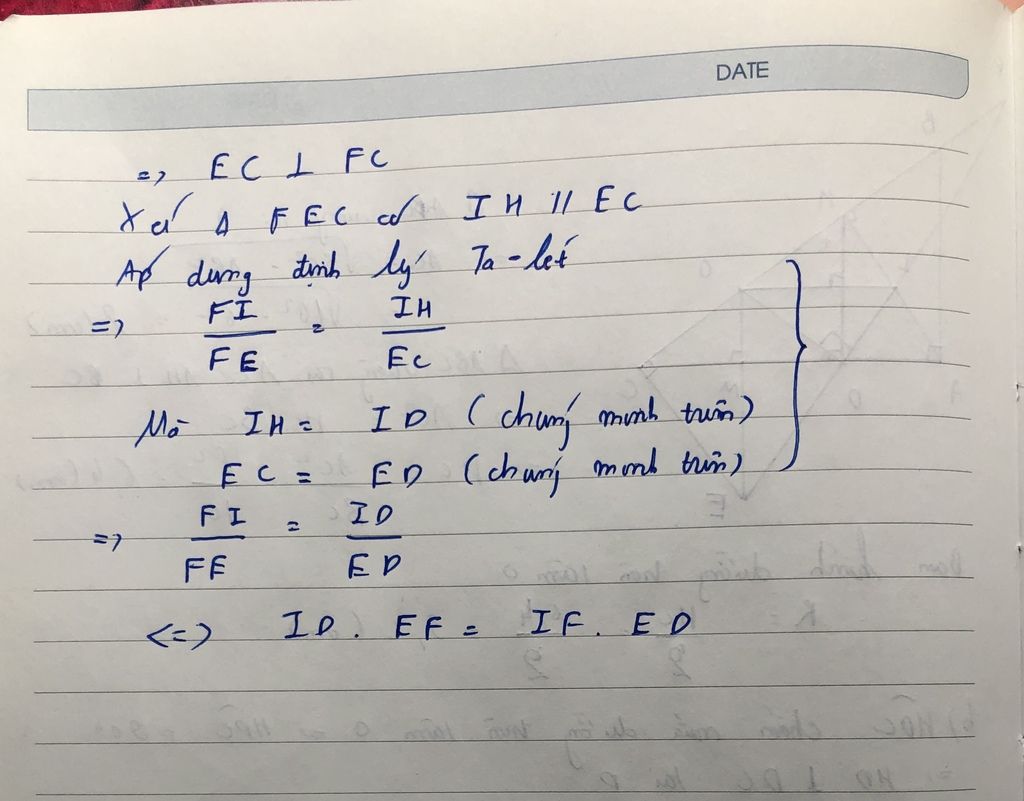 DATE
=> EC ⊥ FC
Xét Δ FEC có IH // EC
Áp dụng định lý Ta-lét
=> FI/FE = IH/EC
Mà IH = ID (chứng minh trên)
EC = ED (chứng minh trên)
=> FI/FE = ID/ED
<=> ID. EF = IF. ED